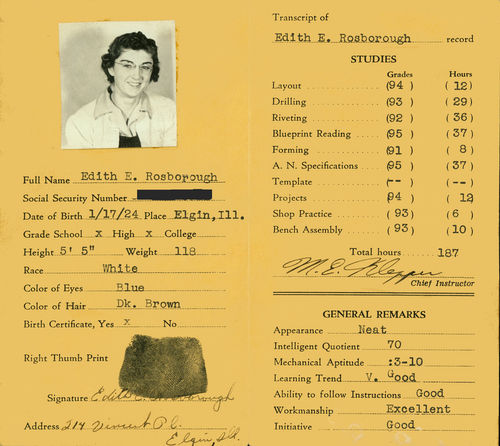 Full Name Edith E. Rosborough
Social Security Number
Date of Birth 1/17/24 Place Elgin,Ill.
Grade School x High x College
Height 5' 5" Weight 118
Race White
Color of Eyes Blue
Color of Hair Dk. Brown
Birth Certificate, Yes x No
Right Thumb Print
Signature Edith E. Rosborough
Address 214 Vincent Pl.
Elgin, Ill.
Transcript of
Edith E. Rosborough record
STUDIES
Grades Hours
Layout (94) (12)
Drilling (93) (29)
Riveting (92) (36)
Blueprint Reading (95) (37)
Forming (91) (8)
A. N. Specifications (95) (37)
Template (--) (--)
Projects 94 ) ( 12
Shop Practice (93) (6 )
Bench Assembly (93) (10)
Total hours 187
M. E. Klepper
Chief Instructor
GENERAL REMARKS
Appearance Neat
Intelligent Quotient 70
Mechanical Aptitude :3-10
Learning Trend V. Good
Ability to follow Instructions Good
Workmanship Excellent
Initiative Good